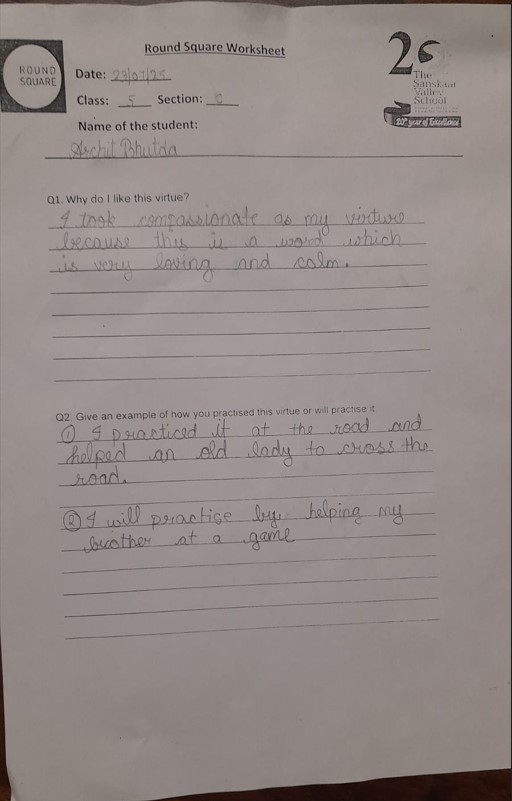 Round Square Worksheet
ROUND
SQUARE
Date: 23/07/25
Class: 5 Section: C
Name of the student:
Archit Bhutda
25
The
Sanskaar
Valley
School
20th year of Excellence
Q1. Why do I like this virtue?
I took compassionate as my virture
because this is a word which
is very loving and calm.
Q2. Give an example of how you practised this virtue or will practise it.
① I practiced it at the road and
helped an old lady to cross the
road.
② I will practise by, helping my
brother at a game